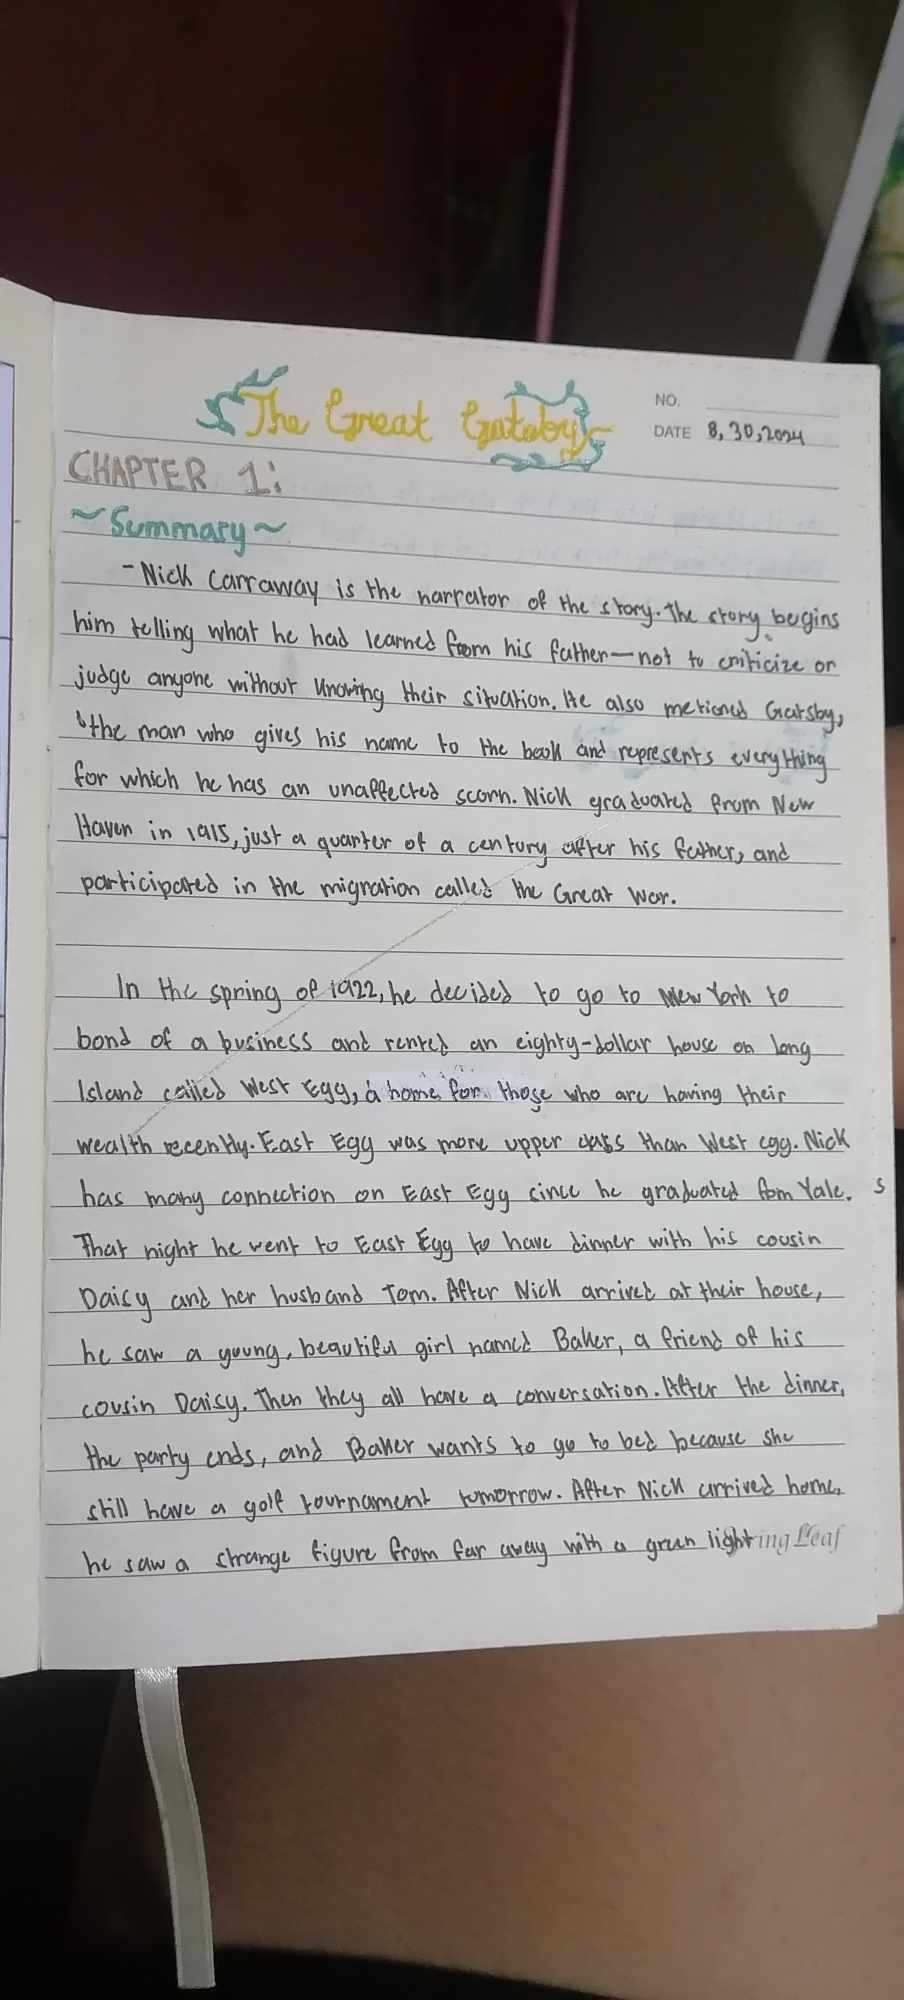 The Great Gatsby
NO.
DATE 8, 30, 2024
CHAPTER 1:
~Summary~
- Nick Carraway is the narrator of the story. The story begins
him telling what he had learned from his father—not to criticize or
judge anyone without knowing their situation. He also metioned Gatsby,
"the man who gives his name to the book and represents everything
for which he has an unaffected scorn. Nick graduated from New
Haven in 1915, just a quarter of a century after his father, and
participated in the migration called the Great War.
In the spring of 1922, he decided to go to New York to
bond of a business and rented an eighty-dollar house on long
Island called West Egg, a home for those who are having their
wealth recently. East Egg was more upper class than West egg. Nick
has many connection on East Egg since he graduated fom Yale. s
That night he went to East Egg to have dinner with his cousin
Daisy and her husband Tom. After Nick arrived at their house,
he saw a young, beautiful girl named Baker, a friend of his
cousin Daisy. Then they all have a conversation. After the dinner,
the party ends, and Baker wants to go to bed because she
still have a golf tournament tomorrow. After Nick arrived home,
he saw a strange figure from far away with a green light ing Leaf